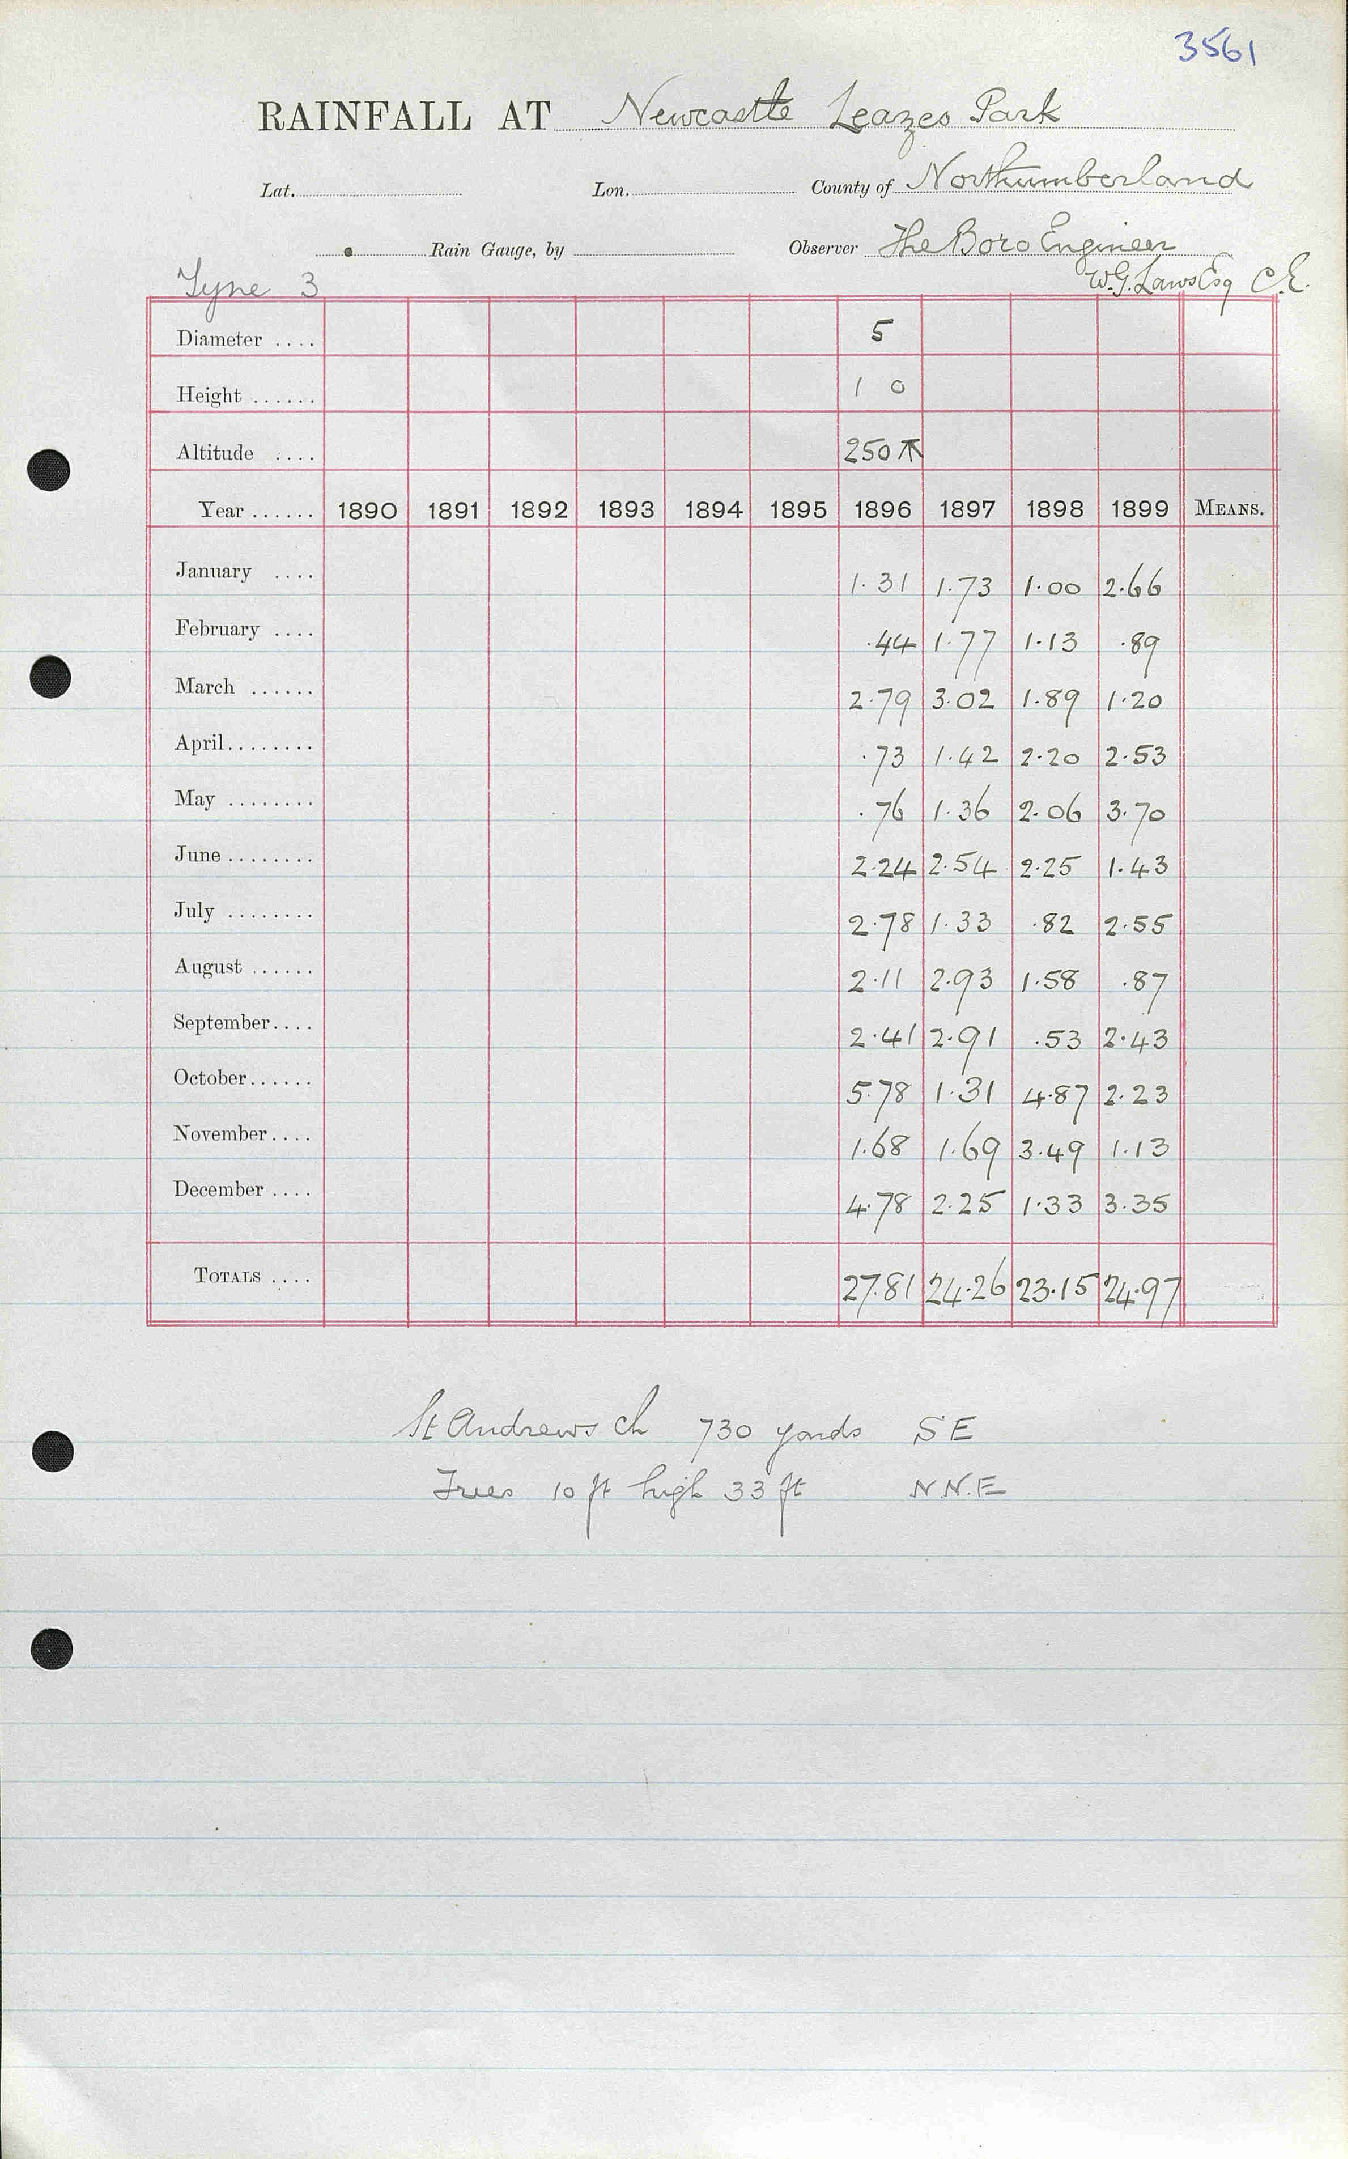 3561
RAINFALL AT Newcastle Leazes Park
Lat. Lon. County of Northumberland
Rain Gauge, by Observer The Boro Engineer
Tyne 3 W.G. Laws Esq C.E.
Diameter .... 5
Height ...... 1 0
Altitude .... 250
Year ...... 1890 1891 1892 1893 1894 1895 1896 1897 1898 1899 MEANS.
January .... 1.31 1.73 1.00 2.66
February .... .44 1.77 1.13 .89
March ...... 2.79 3.02 1.89 1.20
April........ .73 1.42 2.20 2.53
May ........ .76 1.36 2.06 3.70
June ........ 2.24 2.54 2.25 1.43
July ........ 2.78 1.33 .82 2.55
August ...... 2.11 2.93 1.58 .87
September.... 2.41 2.91 .53 2.43
October...... 5.78 1.31 4.87 2.23
November.... 1.68 1.69 3.49 1.13
December .... 4.78 2.25 1.33 3.35
TOTALS .... 27.81 24.26 23.15 24.97
St Andrews Ch 730 yards SE
Trees 10 ft high 33 ft N N.E